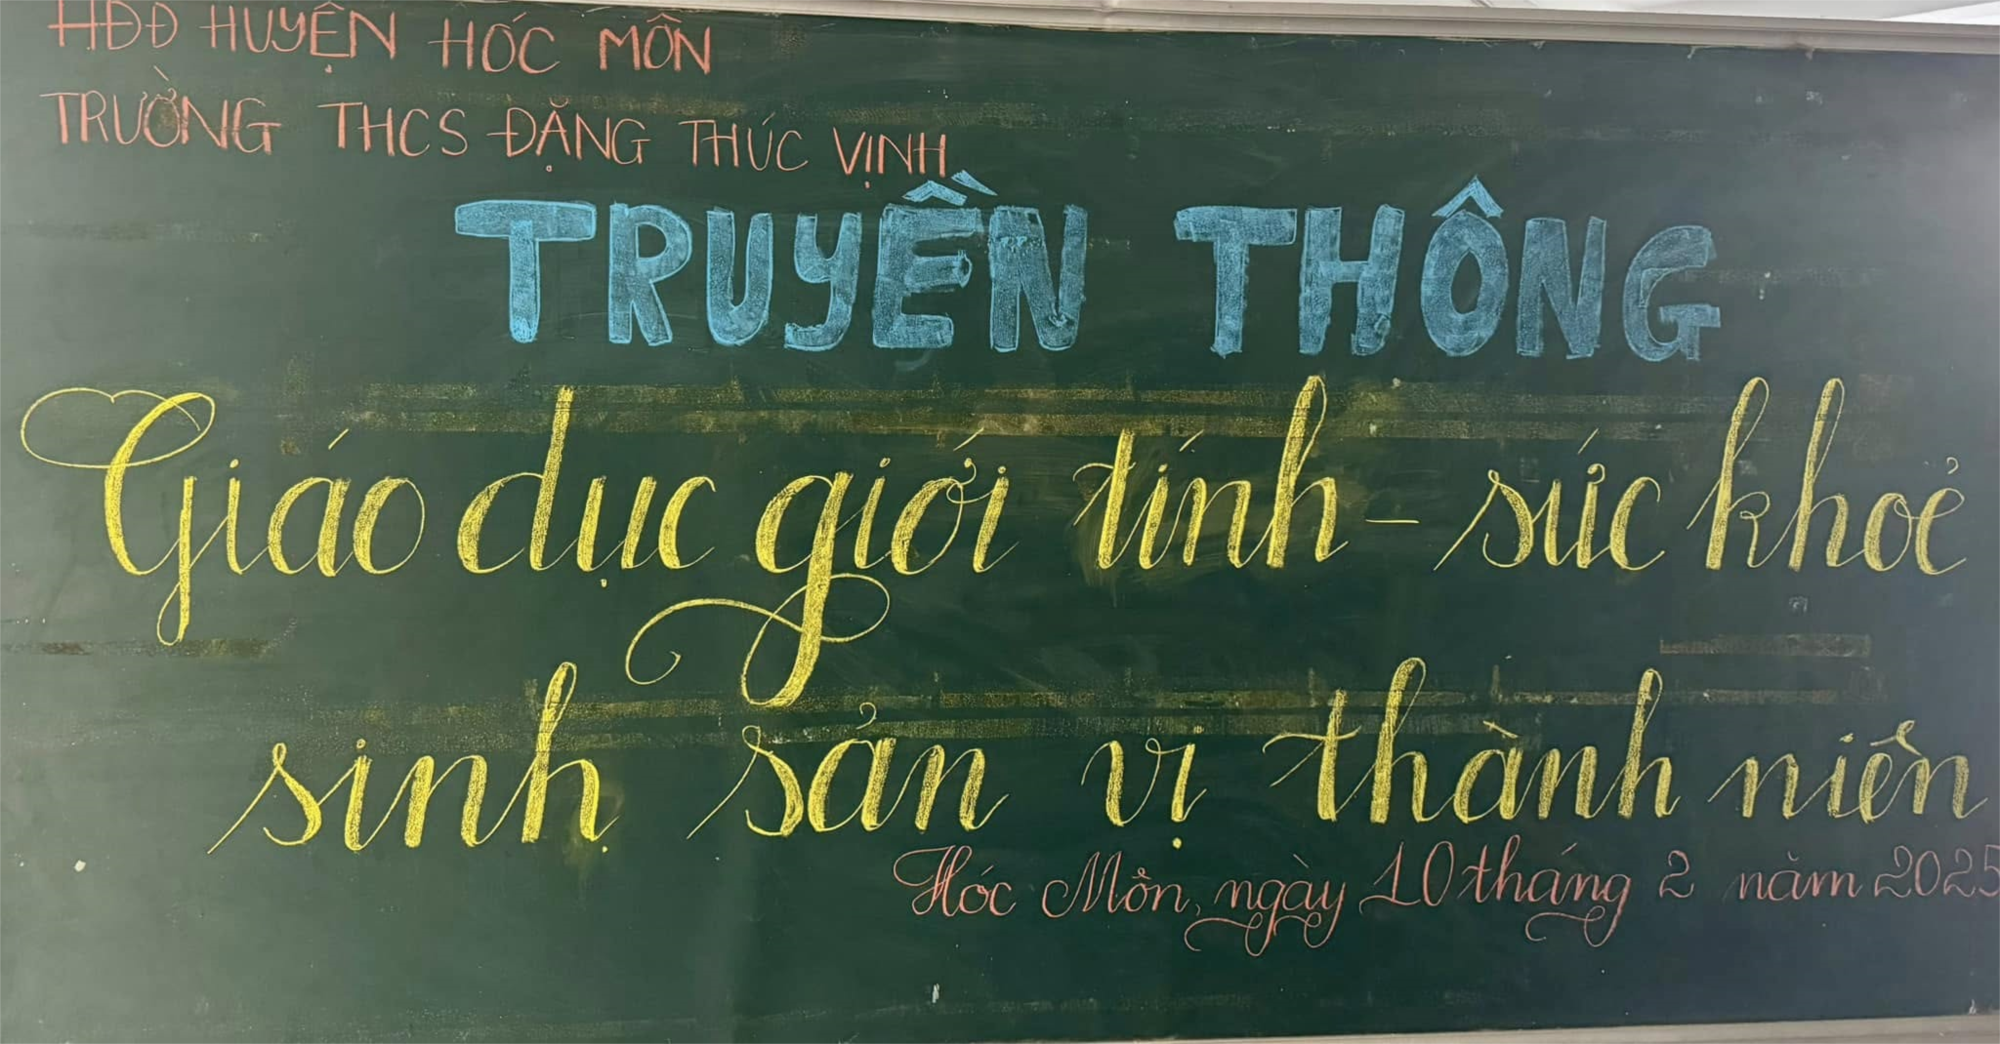 HĐĐ HUYỆN HÓC MÔN
TRƯỜNG THCS ĐẶNG THÚC VỊNH
TRUYỀN THÔNG
Giáo dục giới tính - sức khoẻ
sinh sản vị thành niên
Hóc Môn, ngày 10 tháng 2 năm 2025